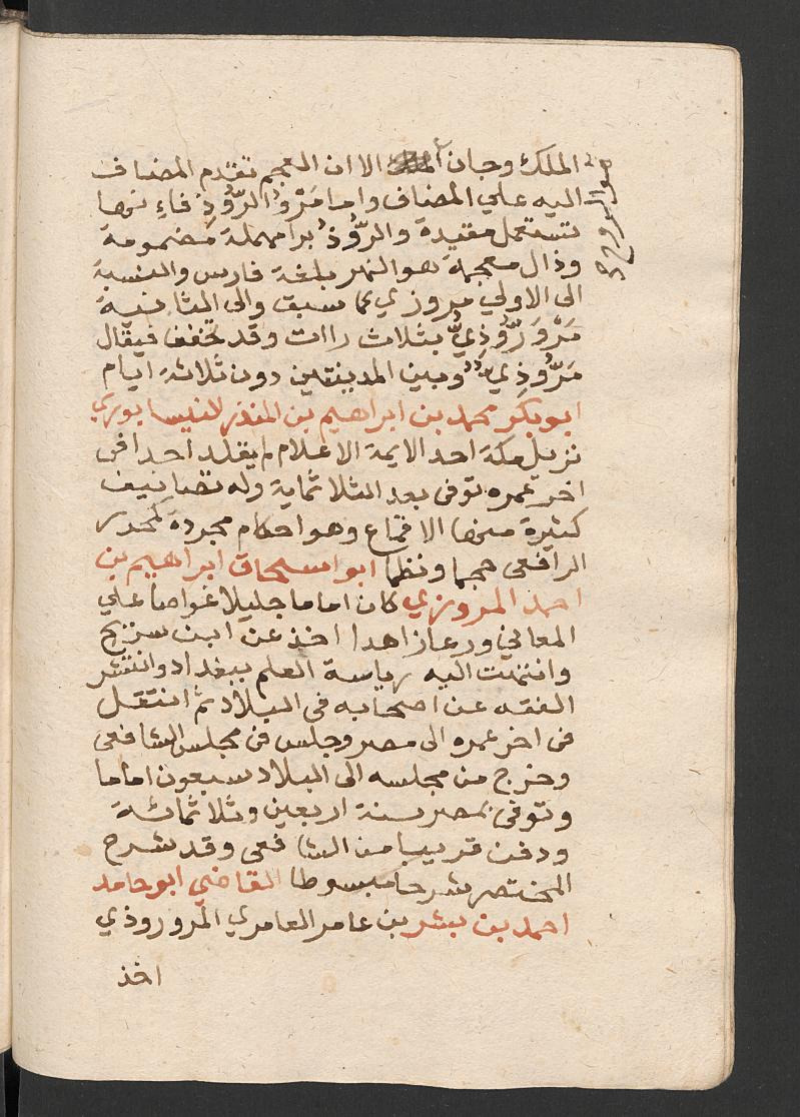 الملك وجان الا ان العجم تقدم المضاف
اليه علي المضاف واما مَرْوُ الرُّوذِ فانها
تستعمل مقيدة والرُّوذ برا مهملة مضمومة
وذال معجمة هو النهر بلغة فارس والنسبة
الى الاولي مروزي كما سبق والى الثانية
مَرْوَرُّوذِيّ بثلاث راات وقد تخفف فيقال
مَرُّوذِي وبين المدينتين دون ثلاثة ايام
ابو بكر محمد بن ابراهيم بن المنذر النيسابوري
نزيل مكة احد الايمة الاعلام لم يقلد احدا فى
اخر عمره توفى بعد الثلاثماية وله تصانيف
كثيرة منها الاقناع وهو احكام مجردة كمحرر
الرافعى حجما ونظما ابو اسحاق ابراهيم بن
احمد المروزي كان اماما جليلا غواصا علي
المعاني ورعا زاهدا اخذ عن ابن سريج
وانتهت اليه رياسة العلم ببغداد وانتشر
الفقه عن اصحابه فى البلاد ثم انتقل
فى اخر عمره الى مصر وجلس فى مجلس الشافعى
وخرج من مجلسه الى البلاد سبعون اماما
وتوفى بمصر سنة اربعين وثلاثمائة
ودفن قريبا من الشافعى وقد شرح
المختصر شرحا مبسوطا القاضي ابو حامد
احمد بن بشر بن عامر العامري المروروذي
اخذ